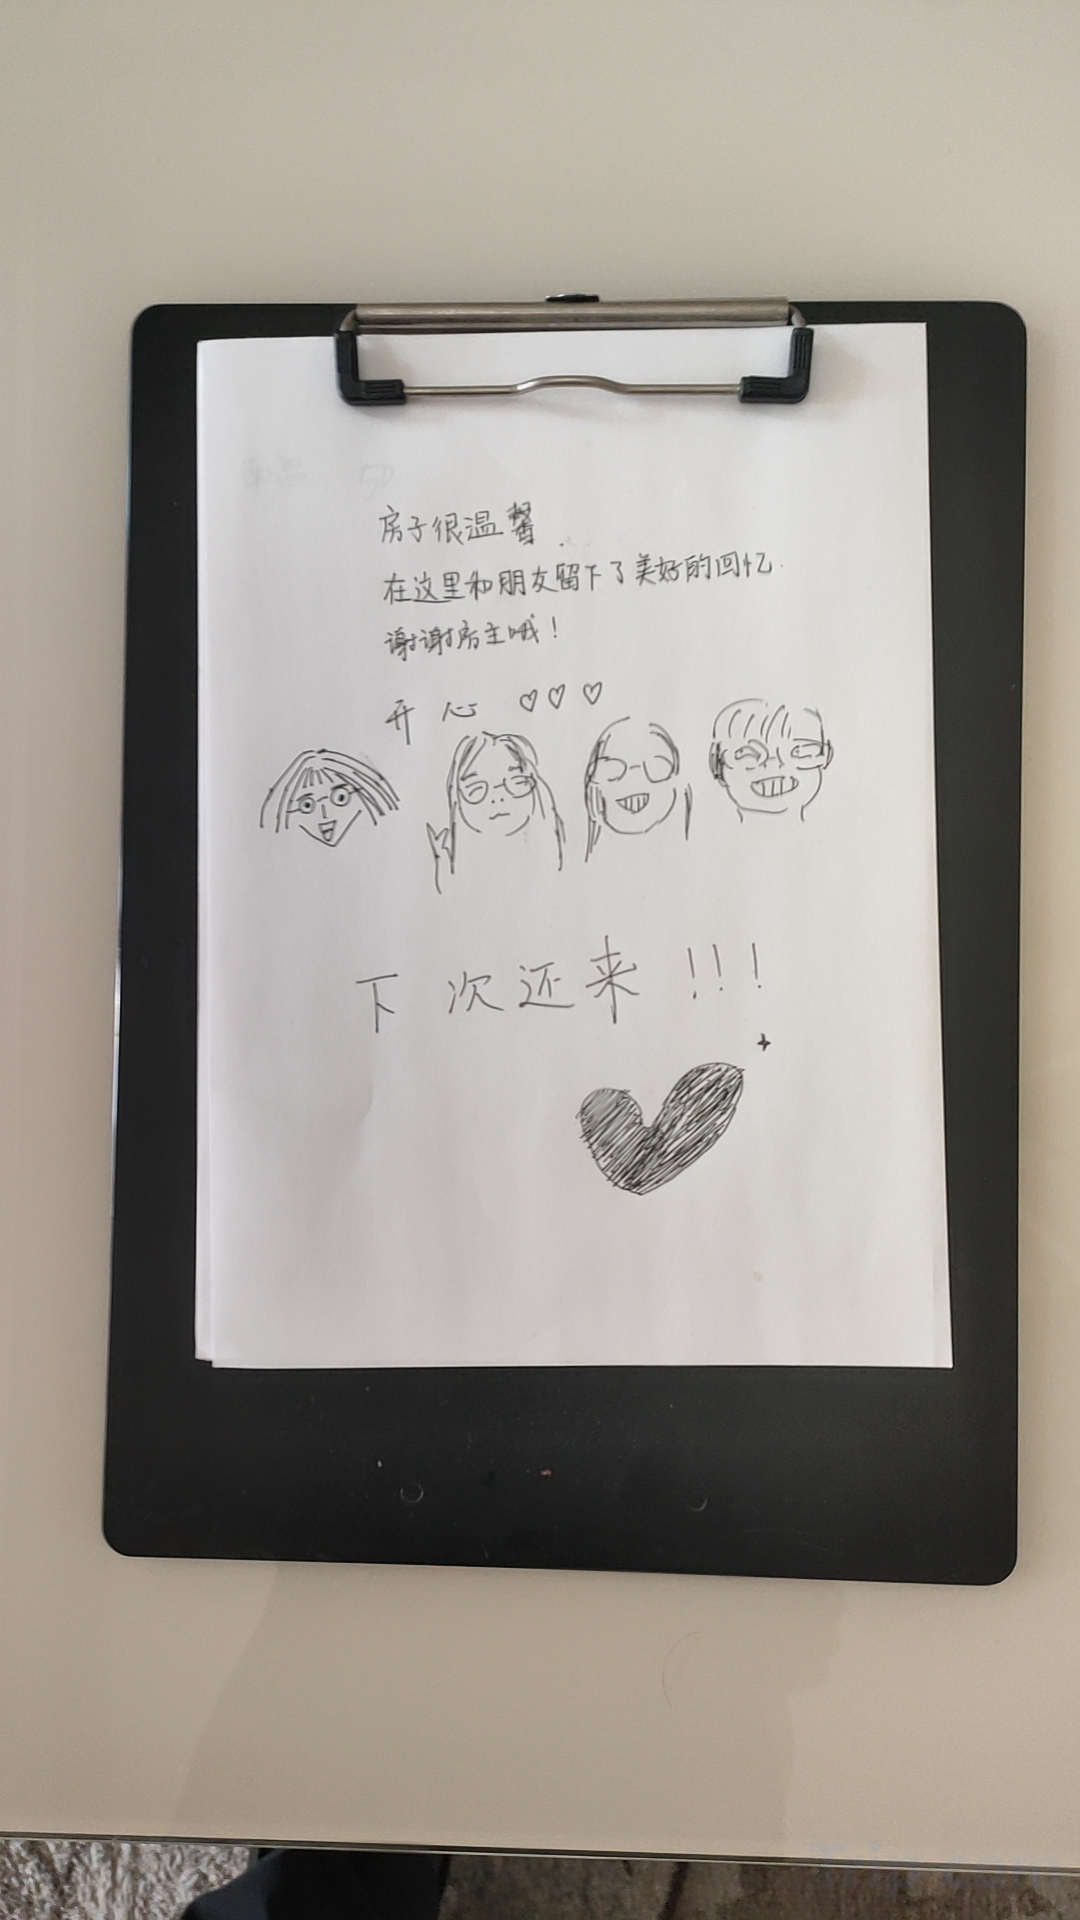 房子很温馨.
在这里和朋友留下了美好的回忆.
谢谢房主哦！
开心 ♡♡♡
下次还来！！！